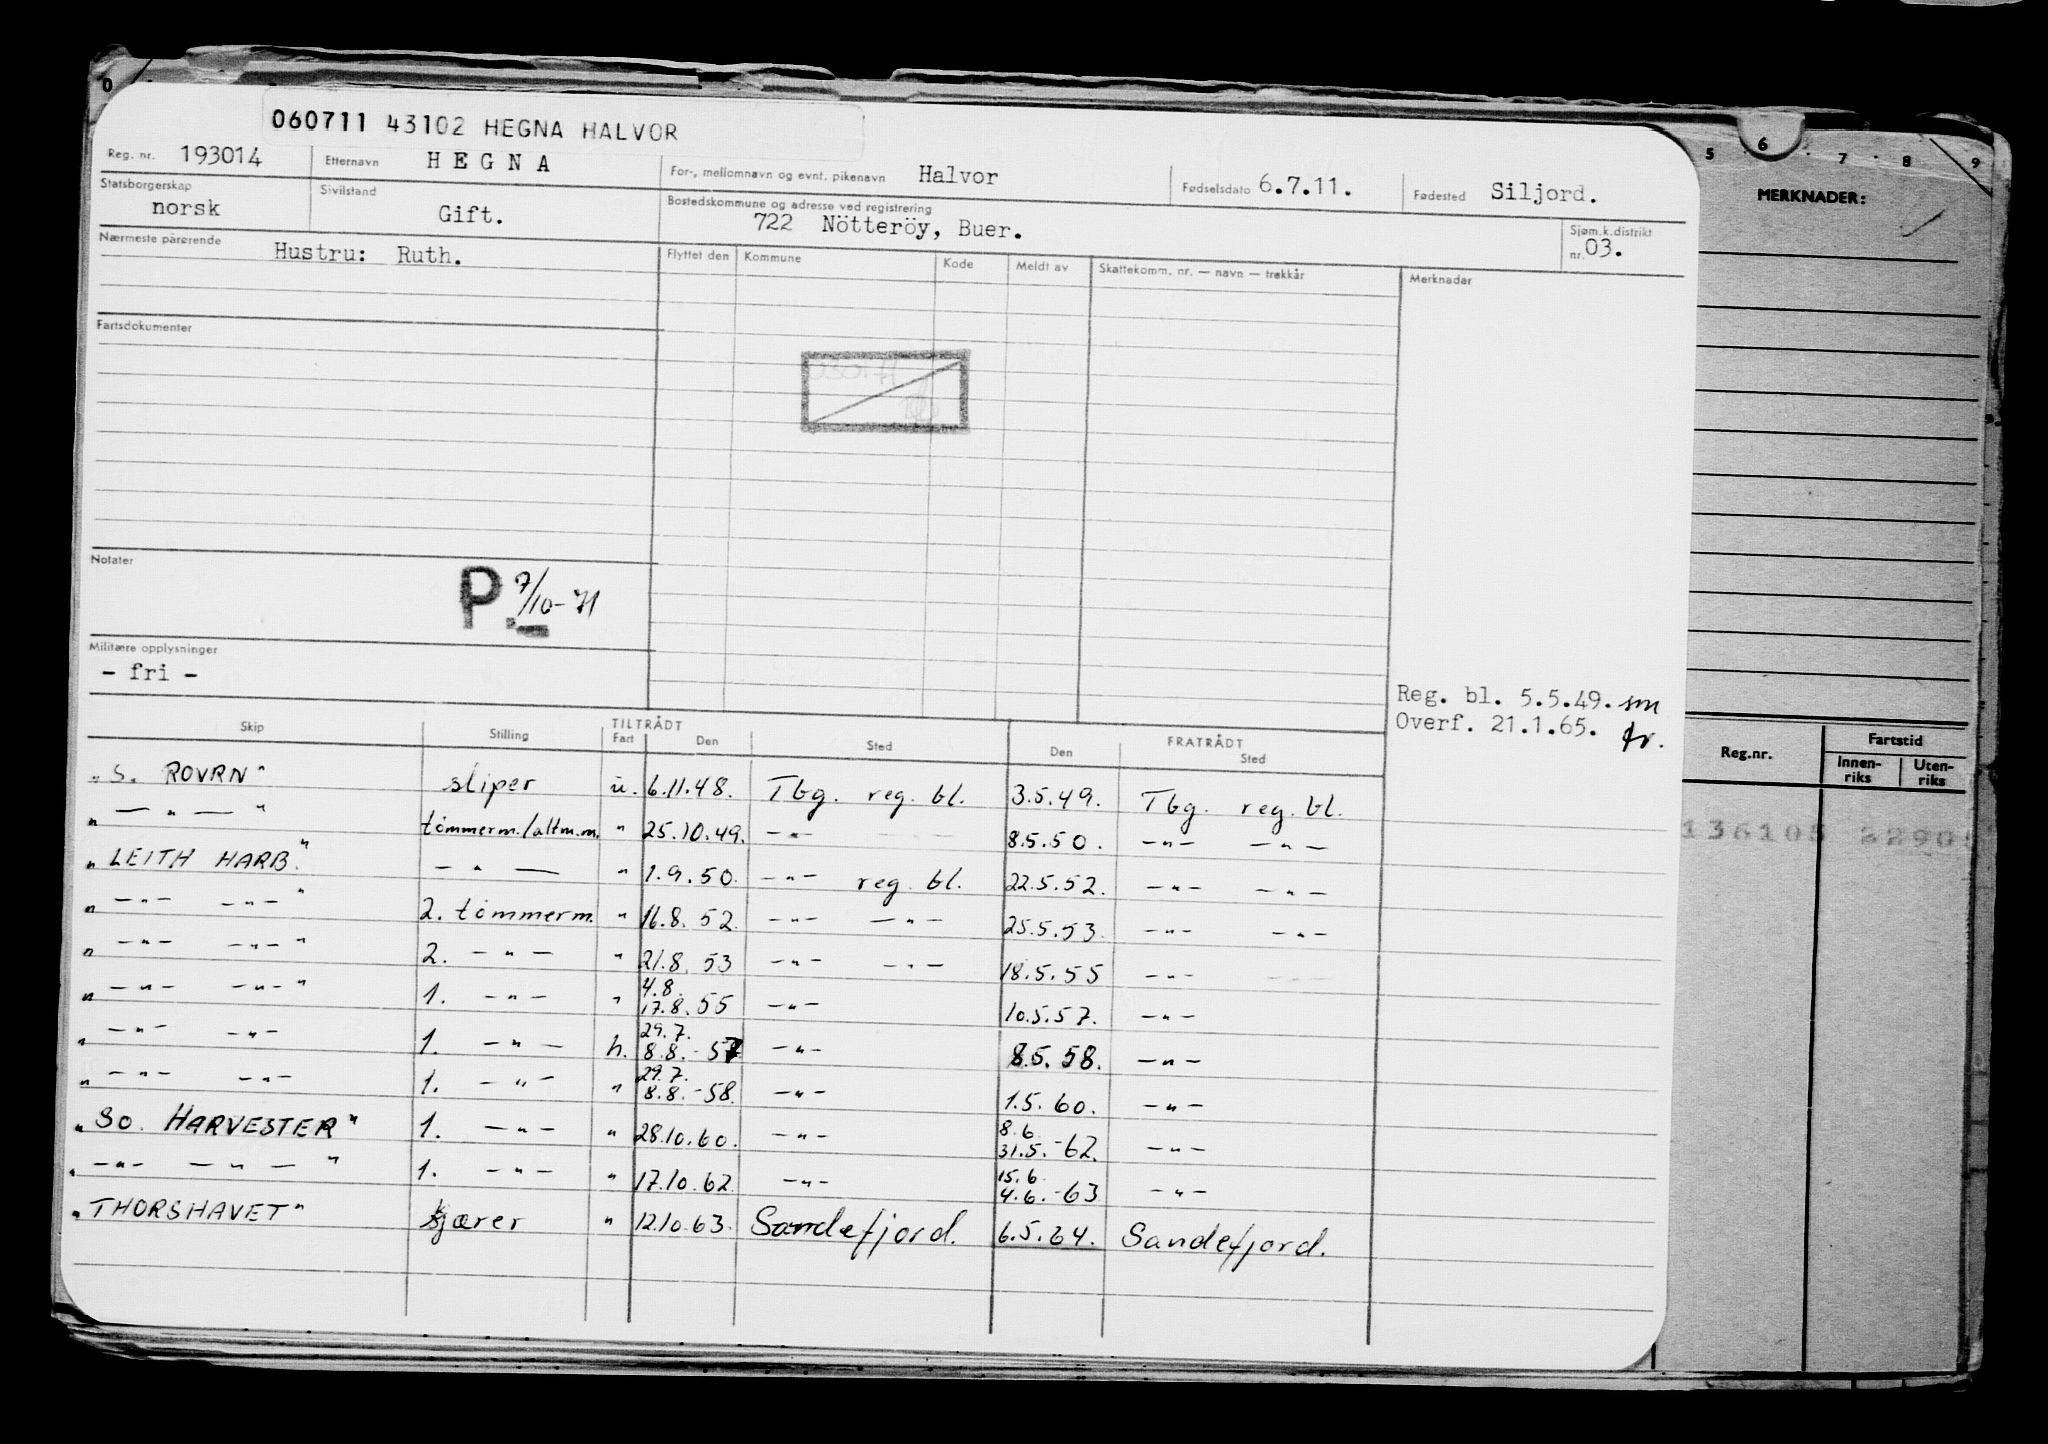 060711 43102 HEGNA HALVOR
Reg. nr. 193014 Etternavn HEGNA For-, mellomnavn og evnt. pikenavn Halvor Fødselsdato 6.7.11. Fødested Siljord.
Statsborgerskap norsk Sivilstand Gift. Bostedskommune og adresse ved registrering 722 Nötteröy, Buer. Sjøm.k.distrikt nr. 03.
Nærmeste pårørende Hustru: Ruth. Flyttet den Kommune Kode Meldt av Skattekomm. nr. — navn — trekkår Merknader
Fartsdokumenter
Notater P. 7/10-71
Militære opplysninger
- fri -
Reg. bl. 5.5.49. sm
Overf. 21.1.65. fr.
TILTRÅDT FRATRÅDT
Skip Stilling Fart Den Sted Den Sted
"S. ROVRN" sliper u. 6.11.48. Tbg. reg. bl. 3.5.49. Tbg. reg. bl.
" — " — " tømmerm./altm.m. " 25.10.49. — " — 8.5.50. — " — — " —
"LEITH HARB." — " — " 1.9.50. — " — reg. bl. 22.5.52. — " — — " —
" — " — — " — " 2. tømmerm. " 16.8.52. — " — — " — 25.5.53. — " — — " —
" — " — — " — " 2. — " — " 21.8.53 — " — — " — 18.5.55 — " —
" — " — — " — " 1. — " — " 4.8. 17.8.55 — " — 10.5.57. — " —
" — " — — " — 1. — " — h. 29.7. 8.8.-57 — " — 8.5.58. — " —
" — " — — " — 1. — " — " 29.7. 8.8.-58. — " — 1.5.60. — " —
"SO. HARVESTER" 1. — " — " 28.10.60. — " — 8.6. 31.5.-62. — " —
" — " — — " — " 1. — " — " 17.10.62. — " — 15.6. 4.6.-63 — " —
"THORSHAVET" kjærer " 12.10.63. Sandefjord. 6.5.64. Sandefjord.
0 5 6 7 8 9
MERKNADER:
Reg.nr. Fartstid
Innen-riks Uten-riks
136105